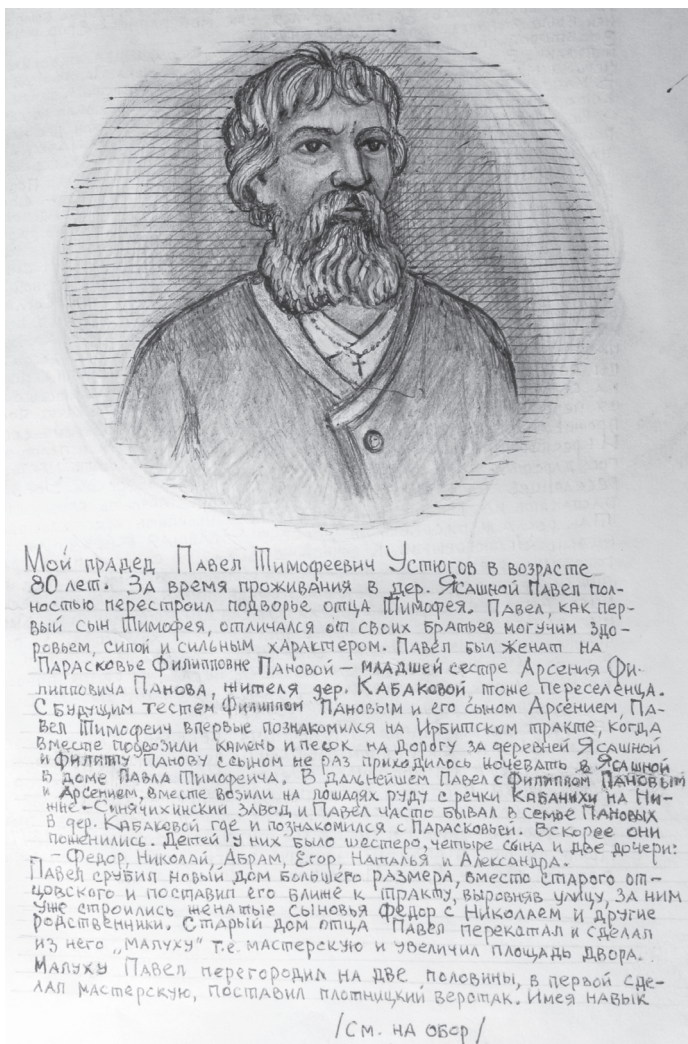 Мой прадед Павел Тимофеевич Устюгов в возрасте
80 лет. За время проживания в дер. Ясашной Павел пол-
ностью перестроил подворье отца Тимофея. Павел, как пер-
вый сын Тимофея, отличался от своих братьев могучим здо-
ровьем, силой и сильным характером. Павел был женат на
Парасковье Филипповне Пановой – младшей сестре Арсения Фи-
липповича Панова, жителя дер. Кабаковой, тоже переселенца.
С будущим тестем Филиппом Пановым и его сыном Арсением, Па-
вел Тимофеич впервые познакомился на Ирбитском тракте, когда
вместе подвозили камень и песок на дорогу за деревней Ясашной
и Филиппу Панову с сыном не раз приходилось ночевать в Ясашной
в доме Павла Тимофеича. В дальнейшем Павел с Филиппом Пановым
и Арсением, вместе возили на лошадях руду с речки Кабанихи на Ни-
жне-Синячихинский завод и Павел часто бывал в семье Пановых
в дер. Кабаковой где и познакомился с Парасковьей. Вскорее они
поженились. Детей у них было шестеро, четыре сына и две дочери:
– Федор, Николай, Абрам, Егор, Наталья и Александра.
Павел срубил новый дом большего размера, вместо старого от-
цовского и поставил его ближе к тракту, выровняв улицу, за ним
уже строились женатые сыновья Федор с Николаем и другие
родственники. Старый дом отца Павел перекатал и сделал
из него „малуху" т.е. мастерскую и увеличил площадь двора.
Малуху Павел перегородил на две половины, в первой сде-
лал мастерскую, поставил плотницкий верстак. Имея навык
/См. на обор/